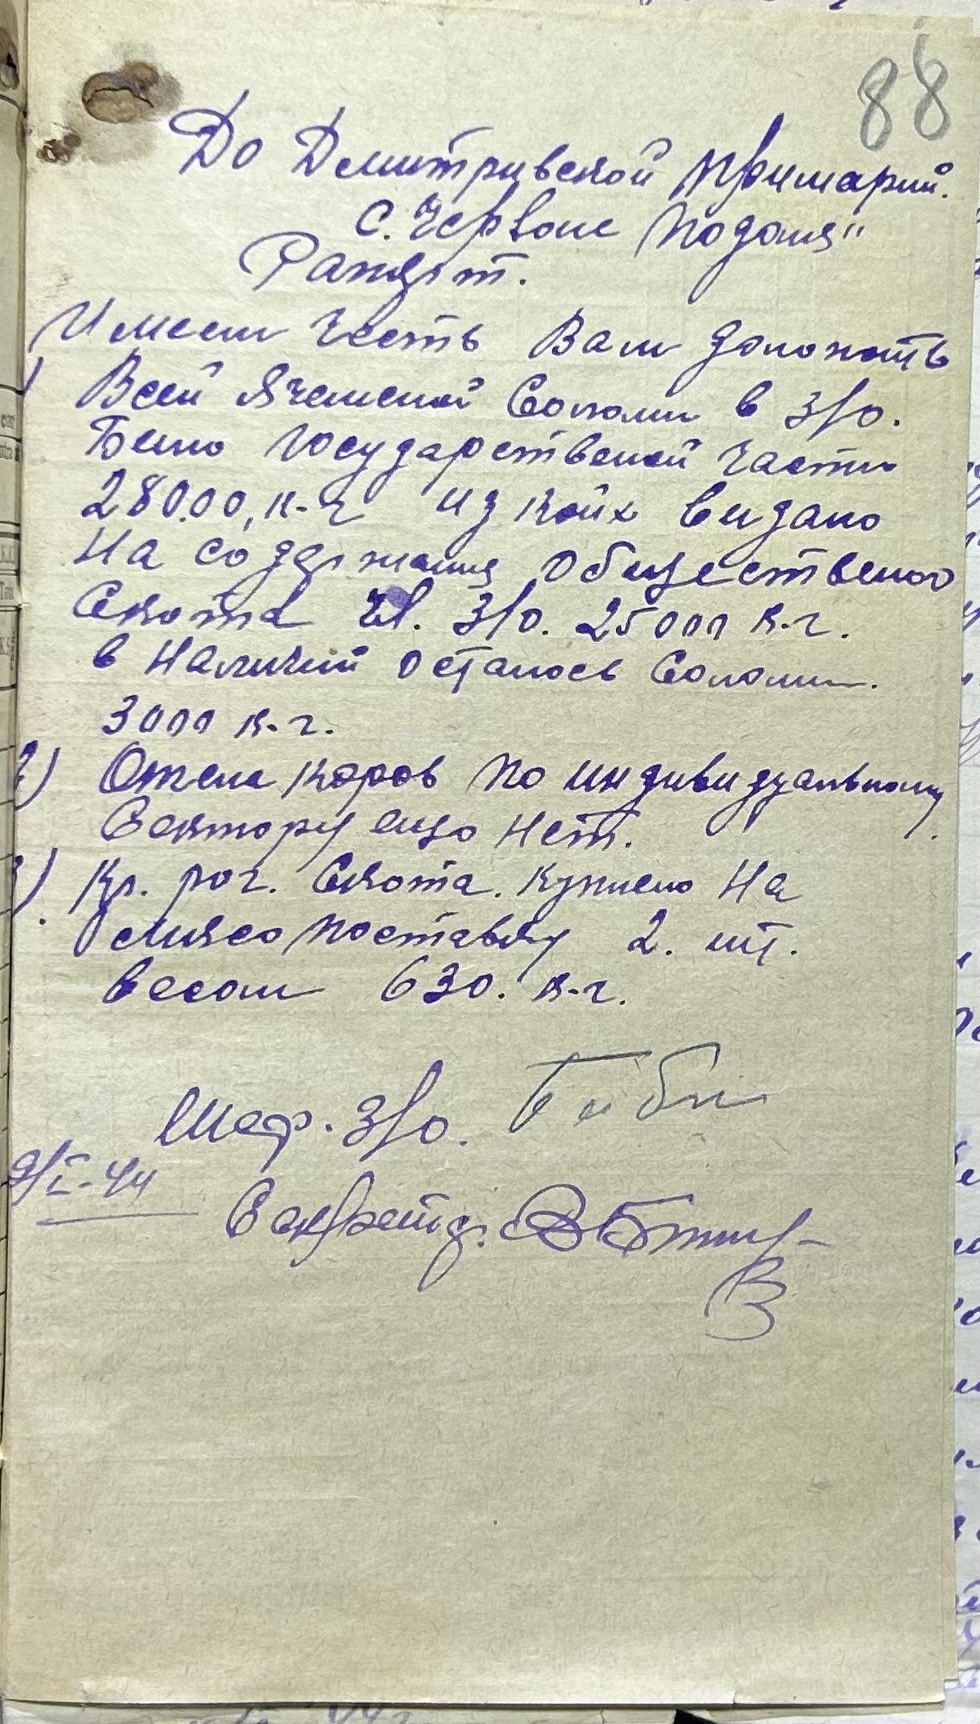 88
До Дмитривской Примарии.
С. Червоне Подолия"
Рапорт.
Имеем Честь Вам доложить
1) Всей Яченной Соломи в з/о.
Било Государственой Части
28000, к-г из коих видано
На содержания Общественого
Скота з/о. 25000 к-г.
в Наличий Осталось Соломи.
3000 к-г.
2) Отела коров по индивидуальному
Сектору ещо Нет.
3) Кр. рог. Скота. куплено На
мясо поставку 2. шт.
весом 630. к-г.
Шеф. з/о.
9/I-44
Секретар.